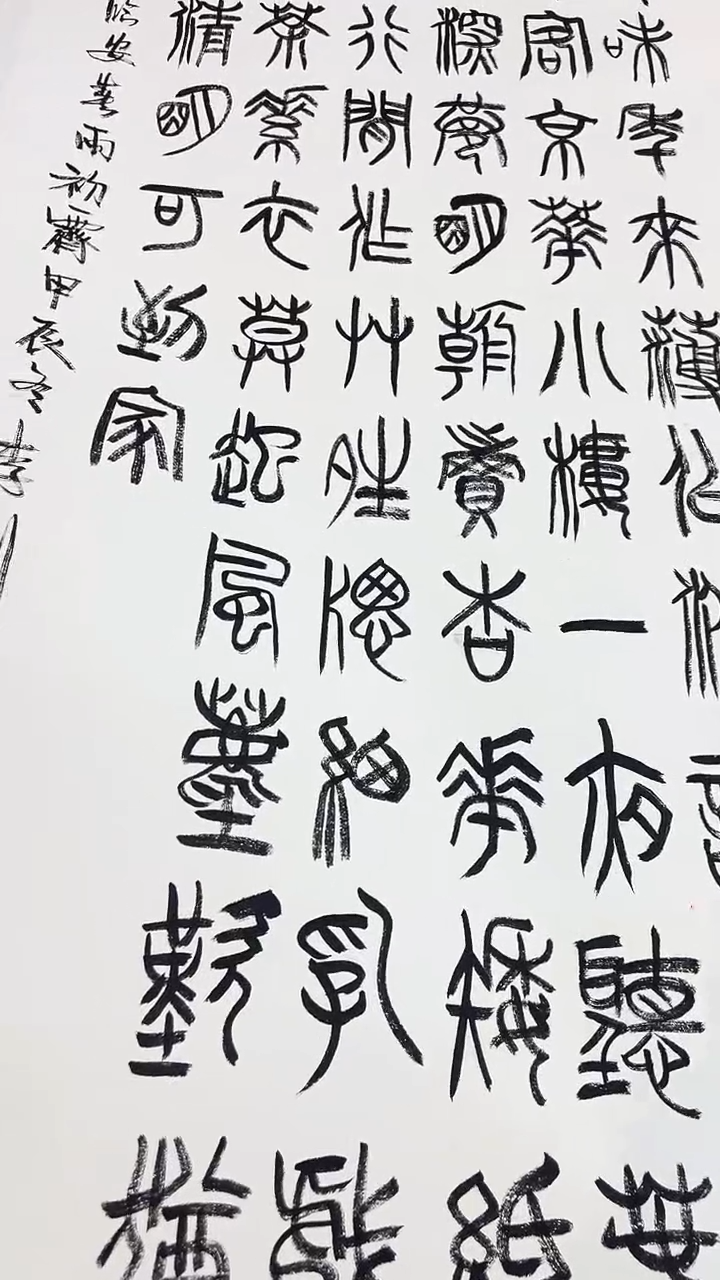 味年來薄佀
客京華小樓一夜聽春
深巷明朝賣杏華矮紙
行閒作艸晴窗細乳戲
茶素衣莫起風塵歎猶
清明可到家
臨安春雨初霽甲辰冬吉